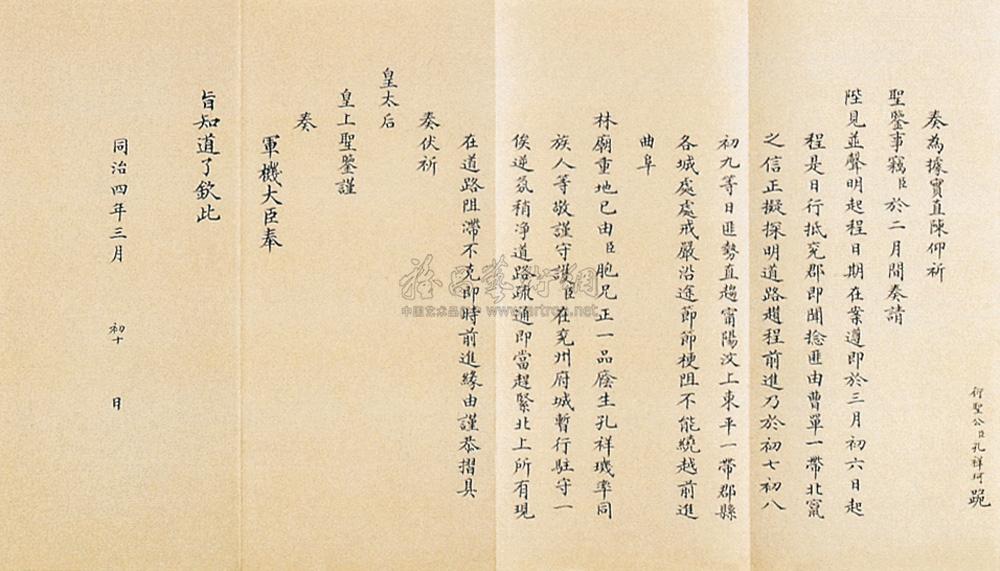 衍聖公臣孔祥珂跪
奏為據實直陳仰祈
聖鑒事竊臣於二月間奏請
陛見並聲明起程日期在案遵即於三月初六日起
程是日行抵兗郡即聞捻匪由曹單一帶北竄
之信正擬探明道路趲程前進乃於初七初八
初九等日匪勢直趨甯陽汶上東平一帶郡縣
各城處處戒嚴沿途節節梗阻不能繞越前進
曲阜
林廟重地已由臣胞兄正一品廕生孔祥璣率同
族人等敬謹守護臣在兗州府城暫行駐守一
俟逆氛稍净道路疏通即當趕緊北上所有現
在道路阻滯不克即時前進緣由謹恭摺具
奏伏祈
皇太后
皇上聖鑒謹
奏
軍機大臣奉
旨知道了欽此
同治四年三月 初十 日
中国艺术品
www.artron.net